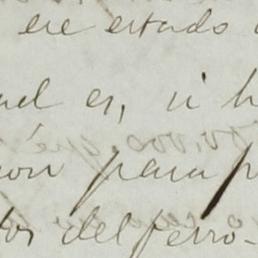 ese estado
el es, si h
on para p
os del ferro-